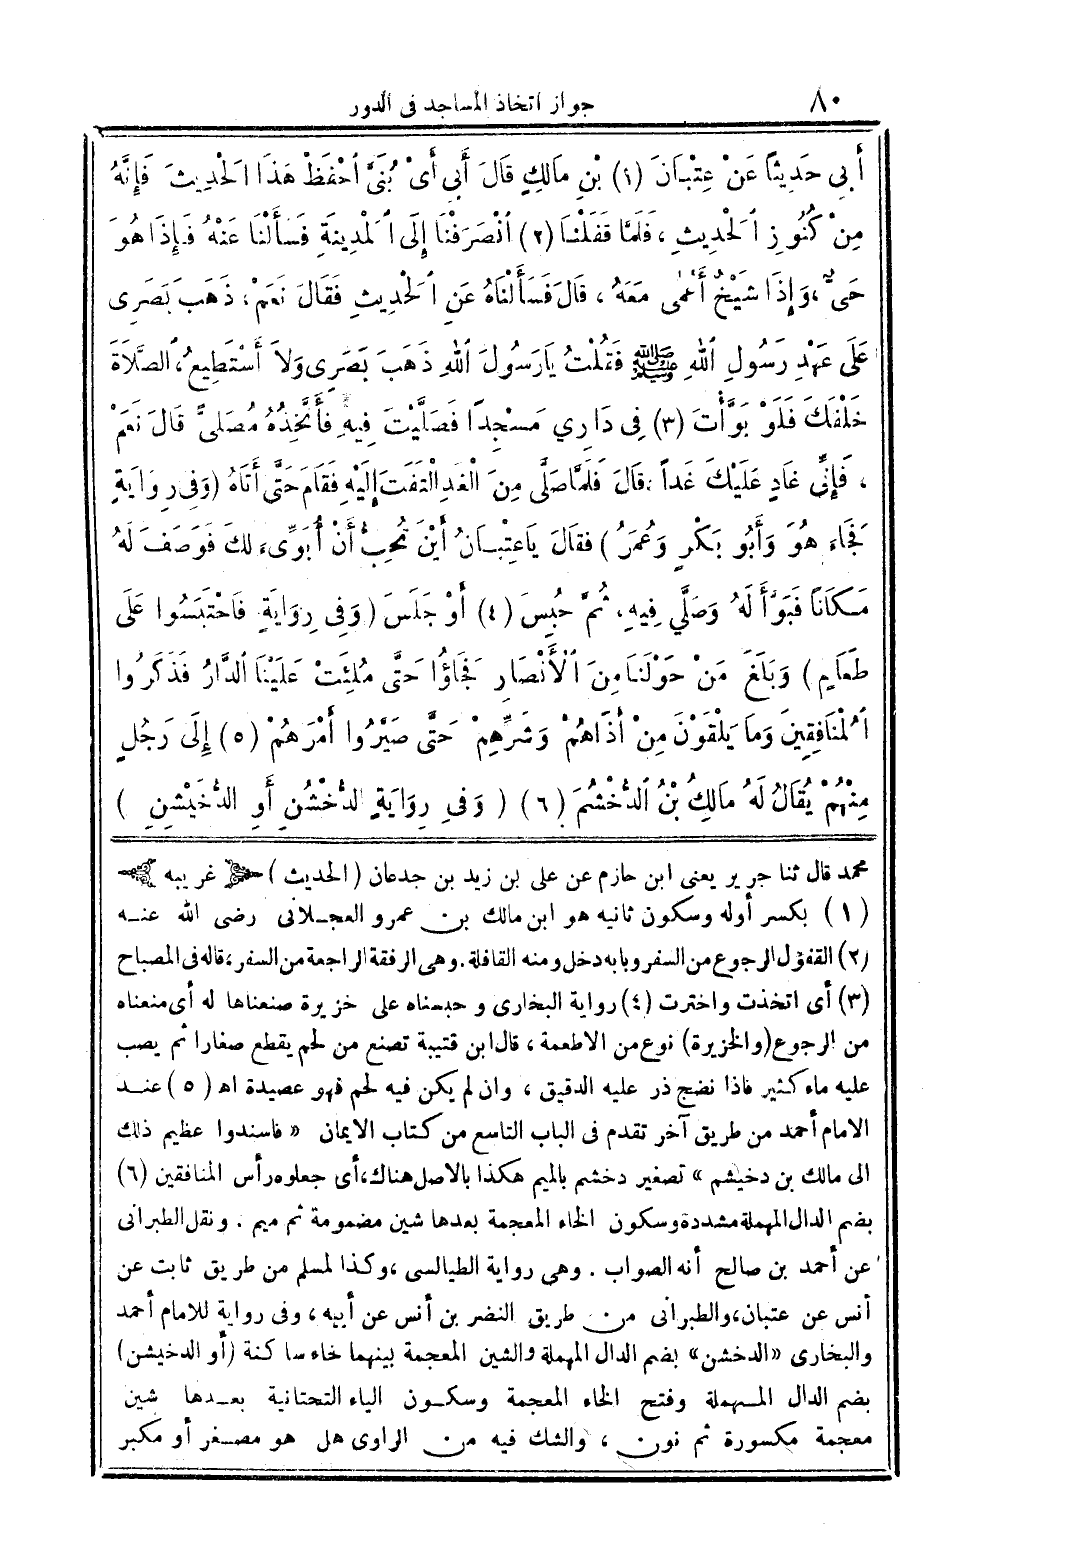 ٨٠ جواز اتخاذ المساجد فى الدور
أَبِي حَدِيثًا عَنْ عِتْبَانَ (١) بْنِ مَالِكٍ قَالَ أَبِي أَىْ بُنَىَّ احْفَظْ هَذَا الْحَدِيثَ فَإِنَّهُ
مِنْ كُنُوزِ الْحَدِيثِ ، فَلَمَّا قَفَلْنَا (٢) انْصَرَفْنَا إِلَى الْمَدِينَةِ فَسَأَلْنَا عَنْهُ فَإِذَا هُوَ
حَىٌّ ، وَإِذَا شَيْخٌ أَعْمٰى مَعَهُ ، قَالَ فَسَأَلْنَاهُ عَنِ الْحَدِيثِ فَقَالَ نَعَمْ ، ذَهَبَ بَصَرِى
عَلَى عَهْدِ رَسُولِ اللهِ ﷺ فَقُلْتُ يَارَسُولَ اللهِ ذَهَبَ بَصَرِى وَلاَ أَسْتَطِيعُ ، الصَّلَاةَ
خَلْفَكَ فَلَوْ بَوَّأْتَ (٣) فِى دَارِي مَسْجِدًا فَصَلَّيْتَ فِيهِ فَأَتَّخِذُهُ مُصَلىًّ قَالَ نَعَمْ
، فَإِنِّى غَادٍ عَلَيْكَ غَداً ، قَالَ فَلَمَّا صَلَّى مِنَ الْغَدِ الْتَفَتَ إِلَيْهِ فَقَامَ حَتَّى أَتَاهُ (وَفِى رِوَايَةٍ
فَجَاءَ هُوَ وَأَبُو بَكْرٍ وَعُمَرُ ) فَقَالَ يَاعِتْبَانُ أَيْنَ تُحِبُّ أَنْ أُبَوِّىءَ لَكَ فَوَصَفَ لَهُ
مَكَانًا فَبَوَّأَ لَهُ وَصَلَّي فِيهِ ، ثُمَّ حُبِسَ (٤) أَوْ جَلَسَ ( وَفِى رِوَايَةٍ فَاحْتَبَسُوا عَلَى
طَعَامٍ ) وَبَلَغَ مَنْ حَوْلَنَا مِنَ الْأَنْصَارِ فَجَاؤُا حَتَّى مُلِئَتْ عَلَيْنَا الدَّارُ فَذَكَرُوا
الْمُنَافِقِينَ وَمَا يَلْقَوْنَ مِنْ أَذَاهُمْ وَشَرِّهِمْ حَتَّى صَيَّرُوا أَمْرَهُمْ (٥) إِلَى رَجُلٍ
مِنْهُمْ يُقَالُ لَهُ مَالِكُ بْنُ الدُّخْشُمِ (٦) ( وَفِى رِوَايَةٍ الدُّخْشُنِ أَوِ الدُّخَيْشِنِ )
محمد قال ثنا جرير يعنى ابن حازم عن على بن زيد بن جدعان (الحديث) غريبه
(١) بكسر أوله وسكون ثانيه هو ابن مالك بن عمرو العجلانى رضى الله عنه
(٢) القفول الرجوع من السفر وبابه دخل ومنه القافلة . وهى الرفقة الراجعة من السفر ، قاله فى المصباح
(٣) أى اتخذت واخترت (٤) رواية البخارى وحبسناه على خزيرة صنعناها له أى منعناه
من الرجوع (والخزيرة) نوع من الاطعمة ، قال ابن قتيبة تصنع من لحم يقطع صغارا ثم يصب
عليه ماء كثير فاذا نضج ذر عليه الدقيق ، وان لم يكن فيه لحم فهو عصيدة اهـ (٥) عند
الامام أحمد من طريق آخر تقدم فى الباب التاسع من كتاب الايمان « فاسندوا عظيم ذلك
الى مالك بن دخيشم » تصغير دخشم بالميم هكذا بالاصل هناك ، أى جعلوه رأس المنافقين (٦)
بضم الدال المهملة مشددة وسكون الخاء المعجمة بعدها شين مضمومة ثم ميم . ونقل الطبرانى
عن أحمد بن صالح أنه الصواب . وهى رواية الطيالسى ، وكذا لمسلم من طريق ثابت عن
أنس عن عتبان ، والطبرانى من طريق النضر بن أنس عن أبيه ، وفى رواية للامام أحمد
والبخارى «الدخشن» بضم الدال المهملة والشين المعجمة بينهما خاء ساكنة (أو الدخيشن)
بضم الدال المهملة وفتح الخاء المعجمة وسكون الياء التحتانية بعدها شين
معجمة مكسورة ثم نون ، والشك فيه من الراوى هل هو مصغر أو مكبر